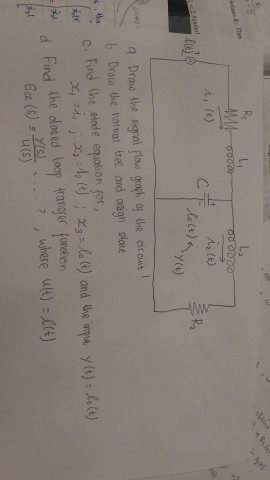 R₁
L₁
L₂
i₁(t)
i₂(t)
e(t)
C
ec(t)
Y(t)
R₂
a. Draw the signal flow graph of the circuit!
b. Draw the normal tree and assign state
c. Find the state equation for,
x₁ = i₁ ; x₂ = i₂(t) ; x₃ = ec(t) and the input Y(t) = ec(t)
d. Find the closed loop transfer function
Gcc(s) = Y(s)/U(s) = .....? , where u(t) = e(t)